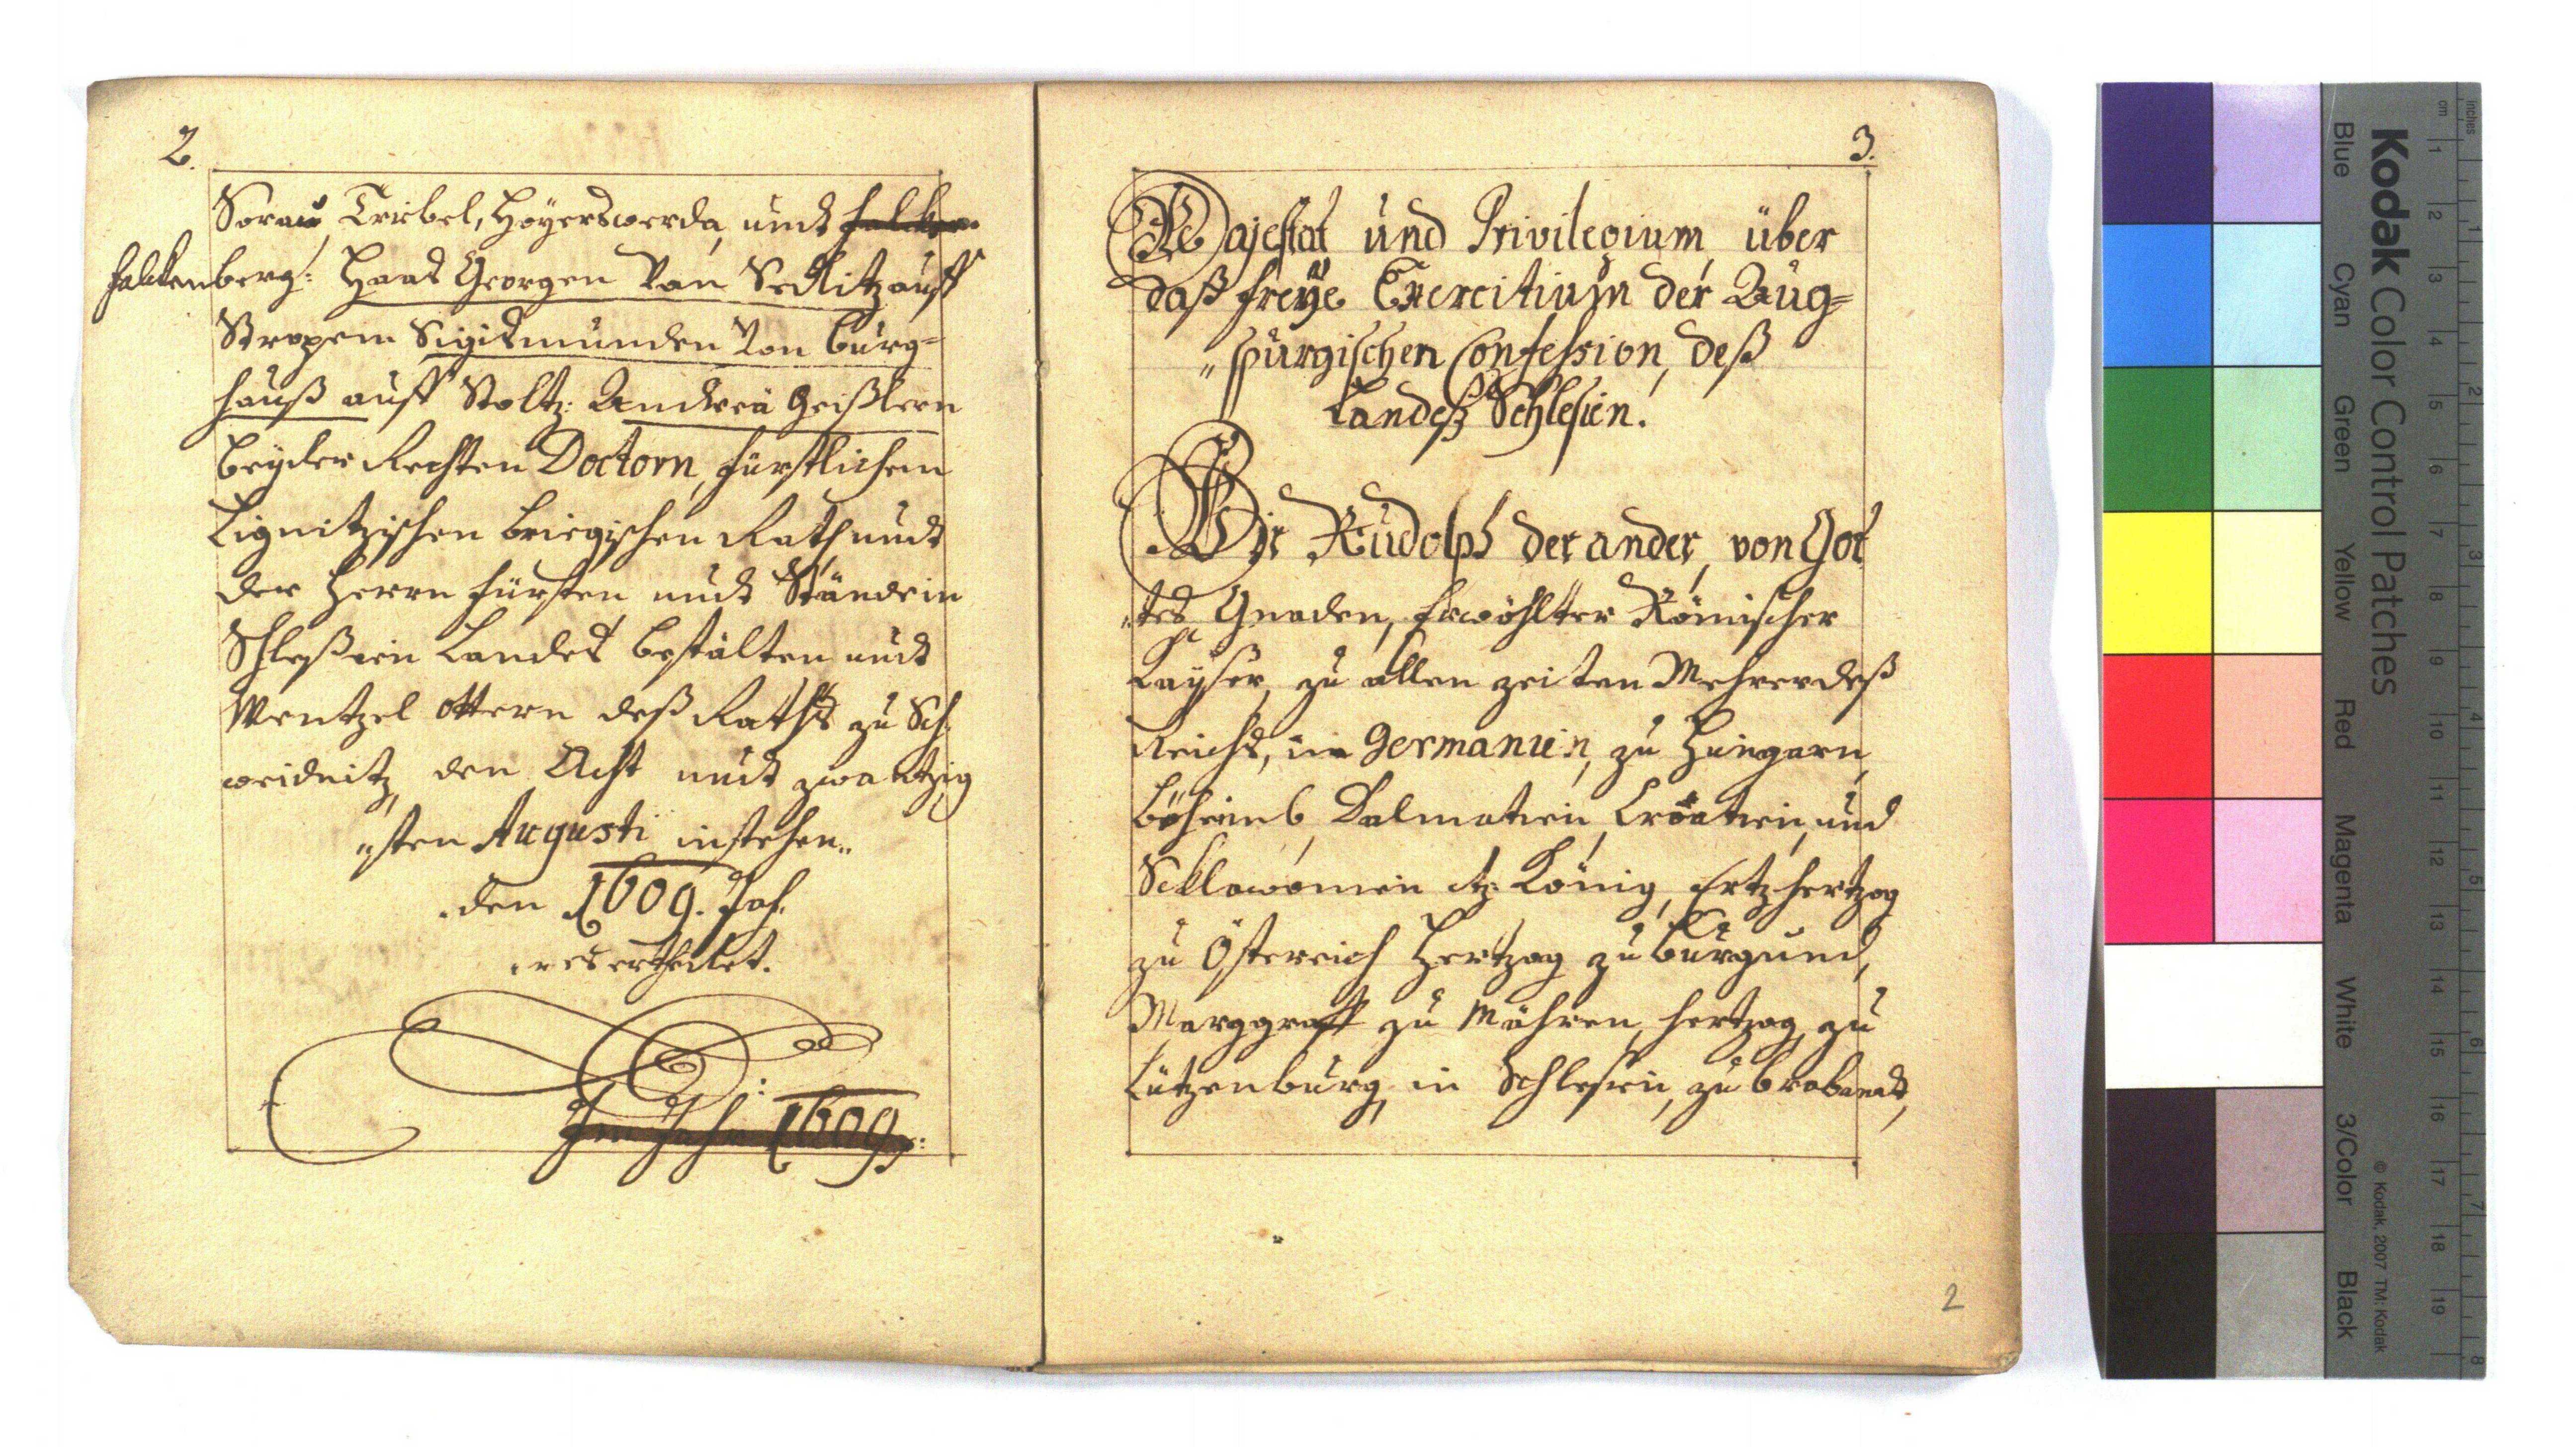 2.
Sorau, Triebel, Hoÿerswerda, undt falken-
falckenberg: Hanß Georgen Von Sedlitz auff
Stroppen Sigißmunden Von Burg=
hauß auff Stoltz: Andreä Geißlern
beyder Rechten Doctorn, fürstlichem
Lignitzischen briegischen Rath undt
der Herrn fürsten undt Stände in
Schleßien Landes bestälten undt
Wentzel Ottern deß Raths zu Sch,
weidnitz, den Acht undt zwantzig
„sten Augusti instehen„
„den 1609. Jah„
„res ertheilet.
Im Jahr 1609:
3.
Majestat und Privilegium über
daß freÿe Exercitium der Aug=
„spurgischen Confession, deß
Landeß Schlesien.
Wir Rudolph der ander, von Got
„tes Gnaden, Erwöhlter Römischer
Kaÿser, zu allen zeiten Mehrer deß
Reichs, in Germanien, zu Hungarn,
Böheimb, Dalmatien, Croatien, und
Scklawonien etc. König, Ertzhertzog
zu Österreich Hertzog zu burgund,
Marggraff zu Mähren, hertzog zu
Lützenburg, in Schlesien, zu brabandt,
2
Kodak Color Control Patches
© Kodak, 2007 TM: Kodak
Blue Cyan Green Yellow Red Magenta White 3/Color Black
inches 1 2 3 4 5 6 7 8
cm 1 2 3 4 5 6 7 8 9 10 11 12 13 14 15 16 17 18 19